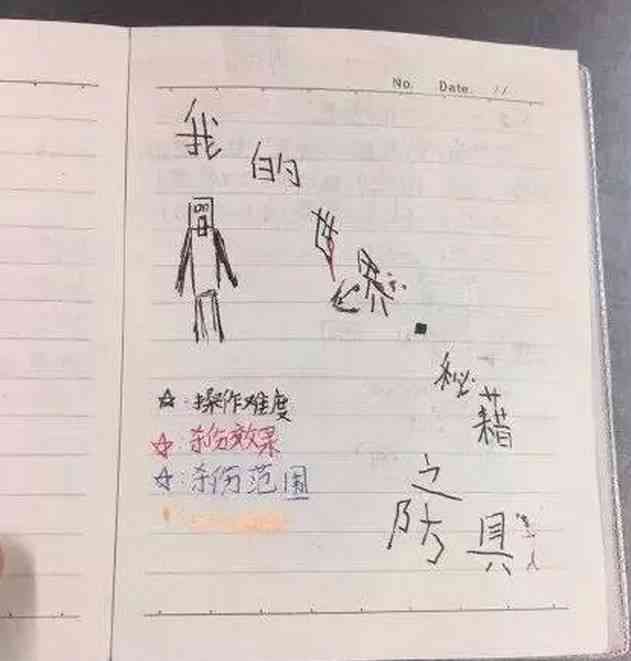 No. Date. / /
我的
世界
秘籍
之
防具
☆:操作难度
☆:杀伤效果
☆:杀伤范围